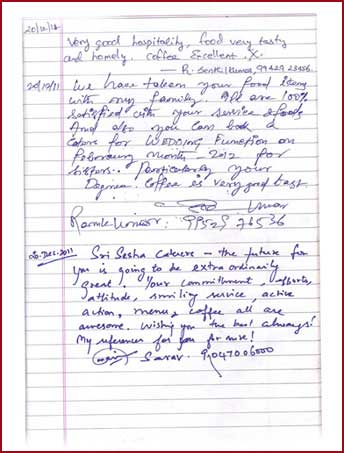 20/12/11
Very good hospitality, food very tasty
and homely. Coffee Excellent.
— R. Senthilkumar, 99429
20/12/11 We have taken your food items
with my family. All are 100%
satisfied with your service & foods
And also you can book a
caters for WEDDING Function on
February month - 2012 for
Sisters. Particularly your
Degree Coffee is very good taste.
Kumar
09-Dec-2011
Sri Sesha Caterers — the future for
you is going to be extra ordinarily
great. Your commitment, efforts,
attitude, smiling service, active
action, menu, coffee all are
awesome. Wishing you the best always!
My references for you for sure!
Sarav. 9047006000